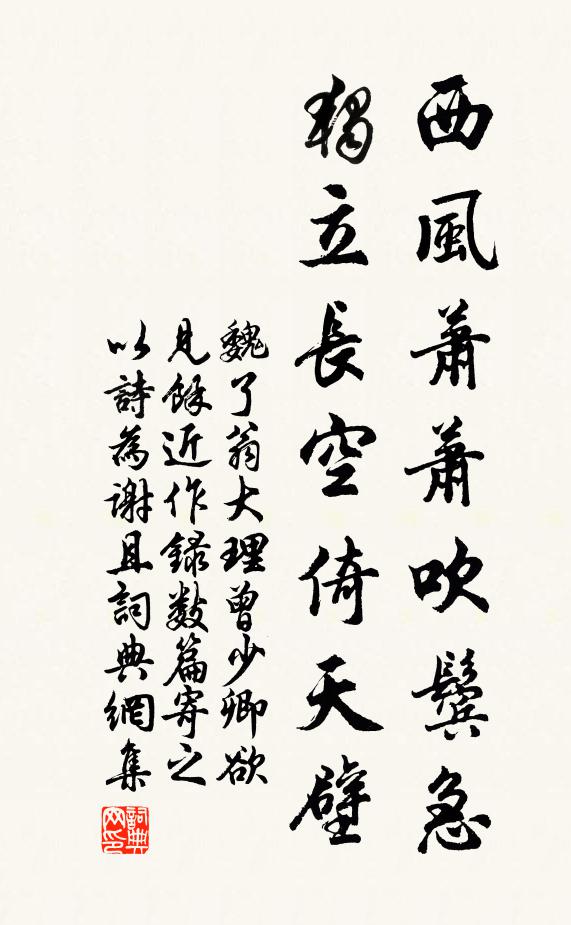 西風蕭蕭吹鬢急
獨立長空倚天壁
魏了翁大理曾少卿欲
見餘近作録數篇寄之
以詩為謝且詞典網集
詞典網印